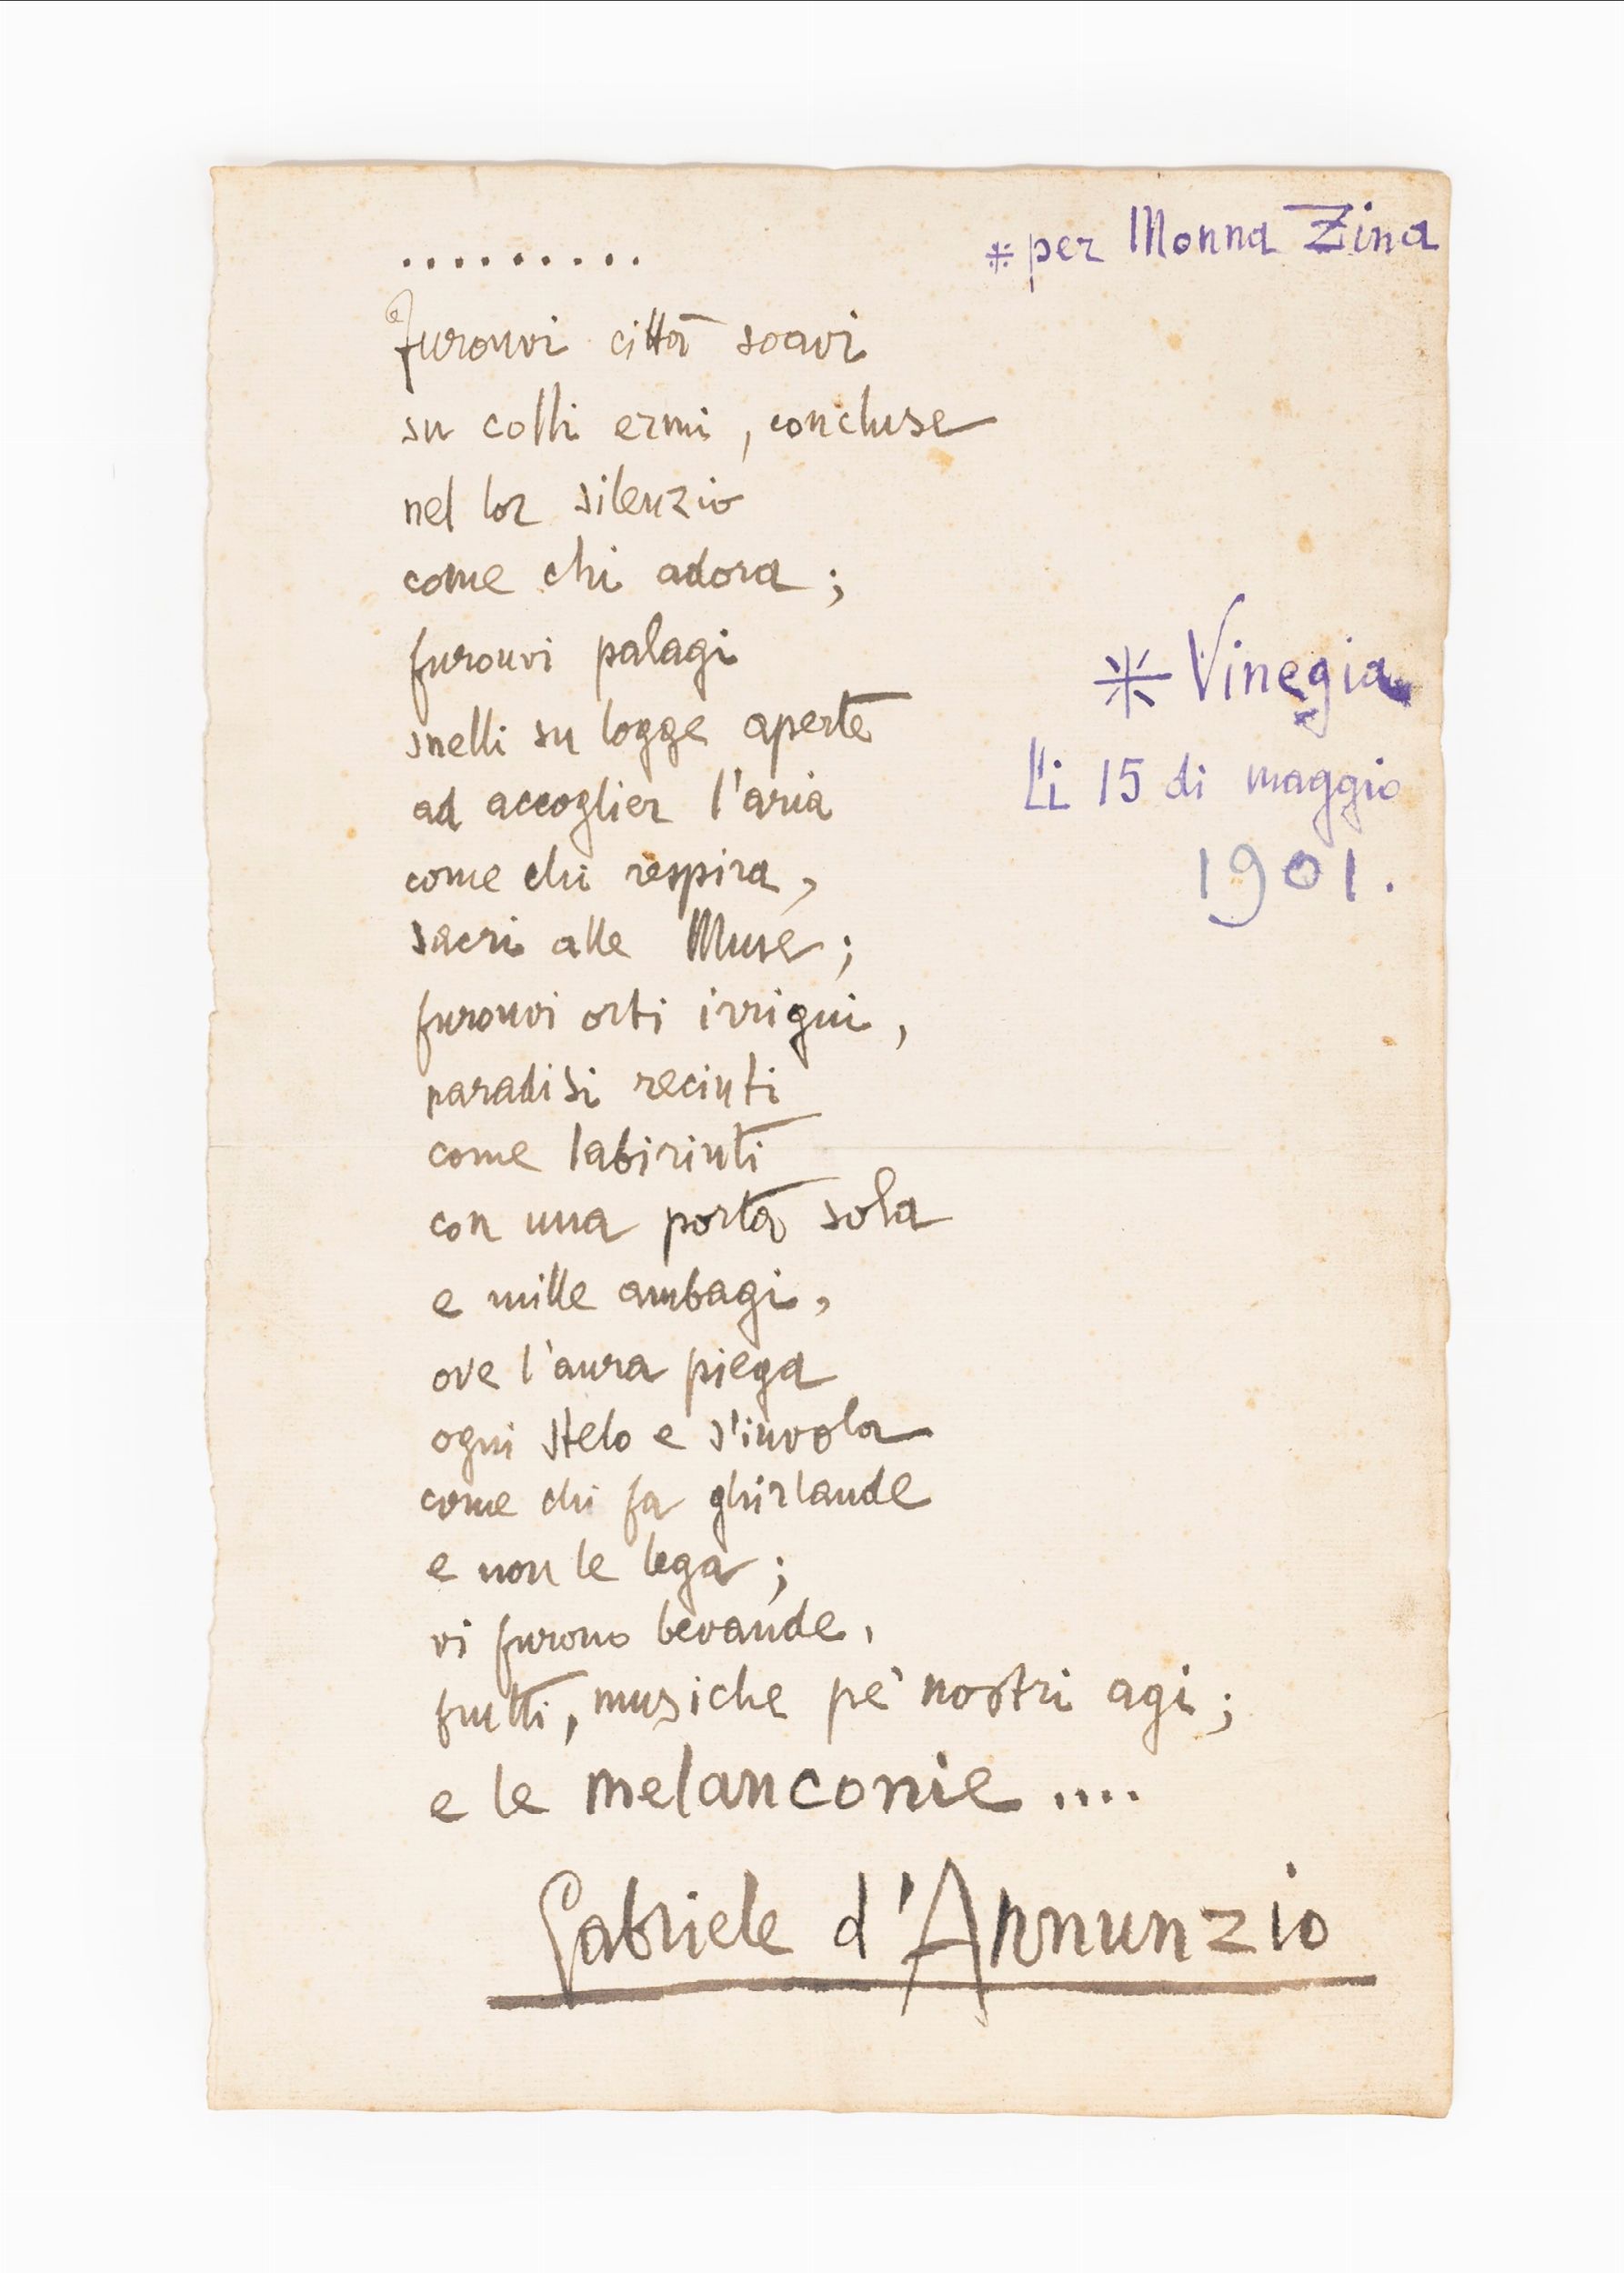 ..........
* per Monna Zina
Furonvi città soavi
su colli ermi, concluse
nel lor silenzio
come chi adora;
furonvi palagi
snelli su logge aperte
ad accoglier l'aria
come chi respira,
sacri alle Muse;
furonvi orti irrigui,
paradisi recinti
come labirinti
con una porta sola
e mille ambagi,
ove l'aura piega
ogni stelo e s'invola
come chi fa ghirlande
e non le lega;
vi furono bevande,
frutti, musiche pe' nostri agi;
e le melanconie....
* Vinegia
Li 15 di maggio
1901.
Gabriele d'Annunzio